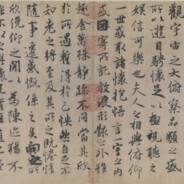 觀宇宙之大俯察品類之盛
所以遊目騁懷足以極視聽之
娛信可樂也夫人之相與俯仰
一世或取諸懷抱悟言一室之內
或因寄所託放浪形骸之外雖
趣舍萬殊靜躁不同當其欣
於所遇蹔得於己怏然自足不
知老之將至及其所之既惓情
隨事遷感慨係之矣向之所
欣俛仰之間以為陳迹猶不